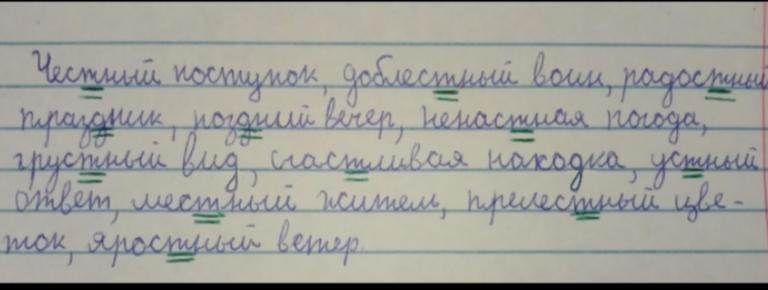 Честный поступок, доблестный воин, радостный
праздник, поздний вечер, ненастная погода,
грустный вид, счастливая находка, устный
ответ, местный житель, прелестный цве-
ток, яростный ветер.